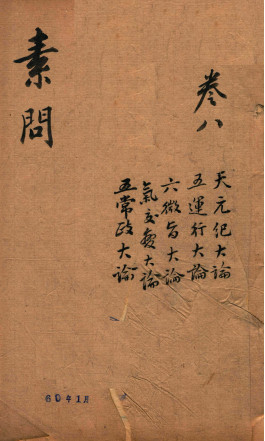 素問
卷八
天元纪大論
五運行大論
六微旨大論
氣交變大論
五常政大論
60年1月